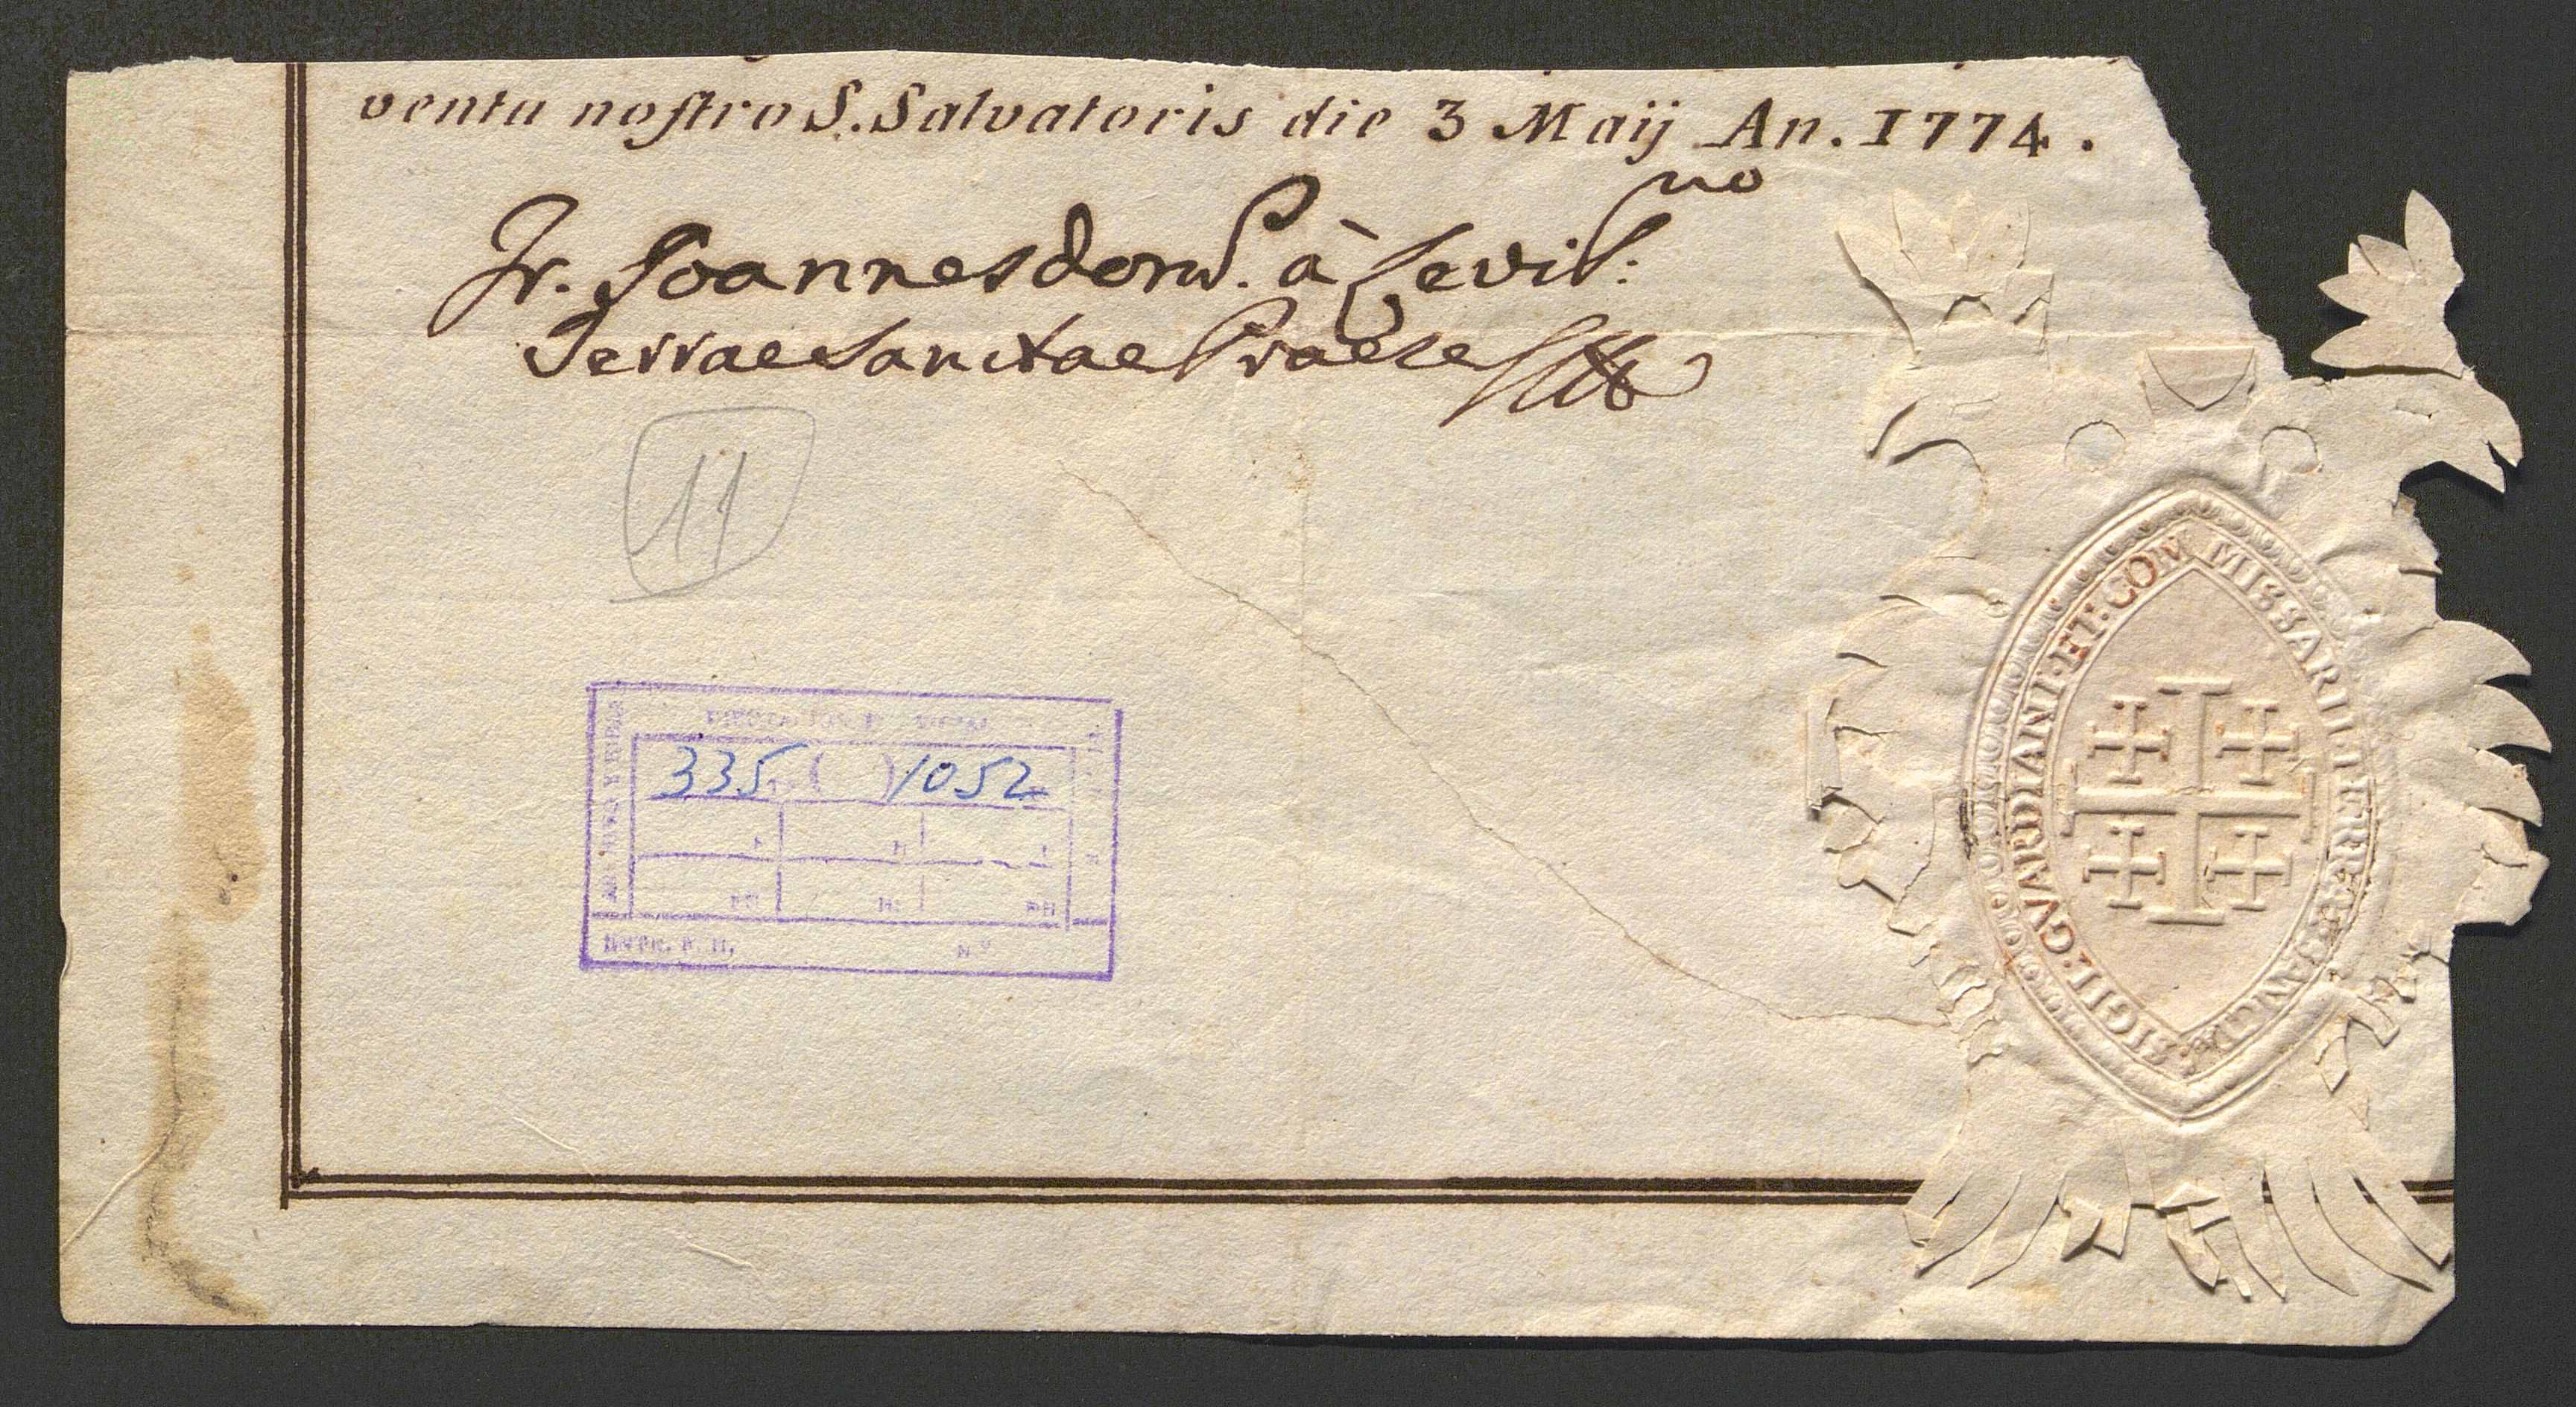 ventu nostro S. Salvatoris die 3 Maij An. 1774.
Fr. Joannes dom.s à Sevil:no
Terrae Sanctae Praeses
11
335 ( )1052
Nº
SIGIL: GVARDIANI·ET:COMMISSARII·TERRÆ·SANCTÆ